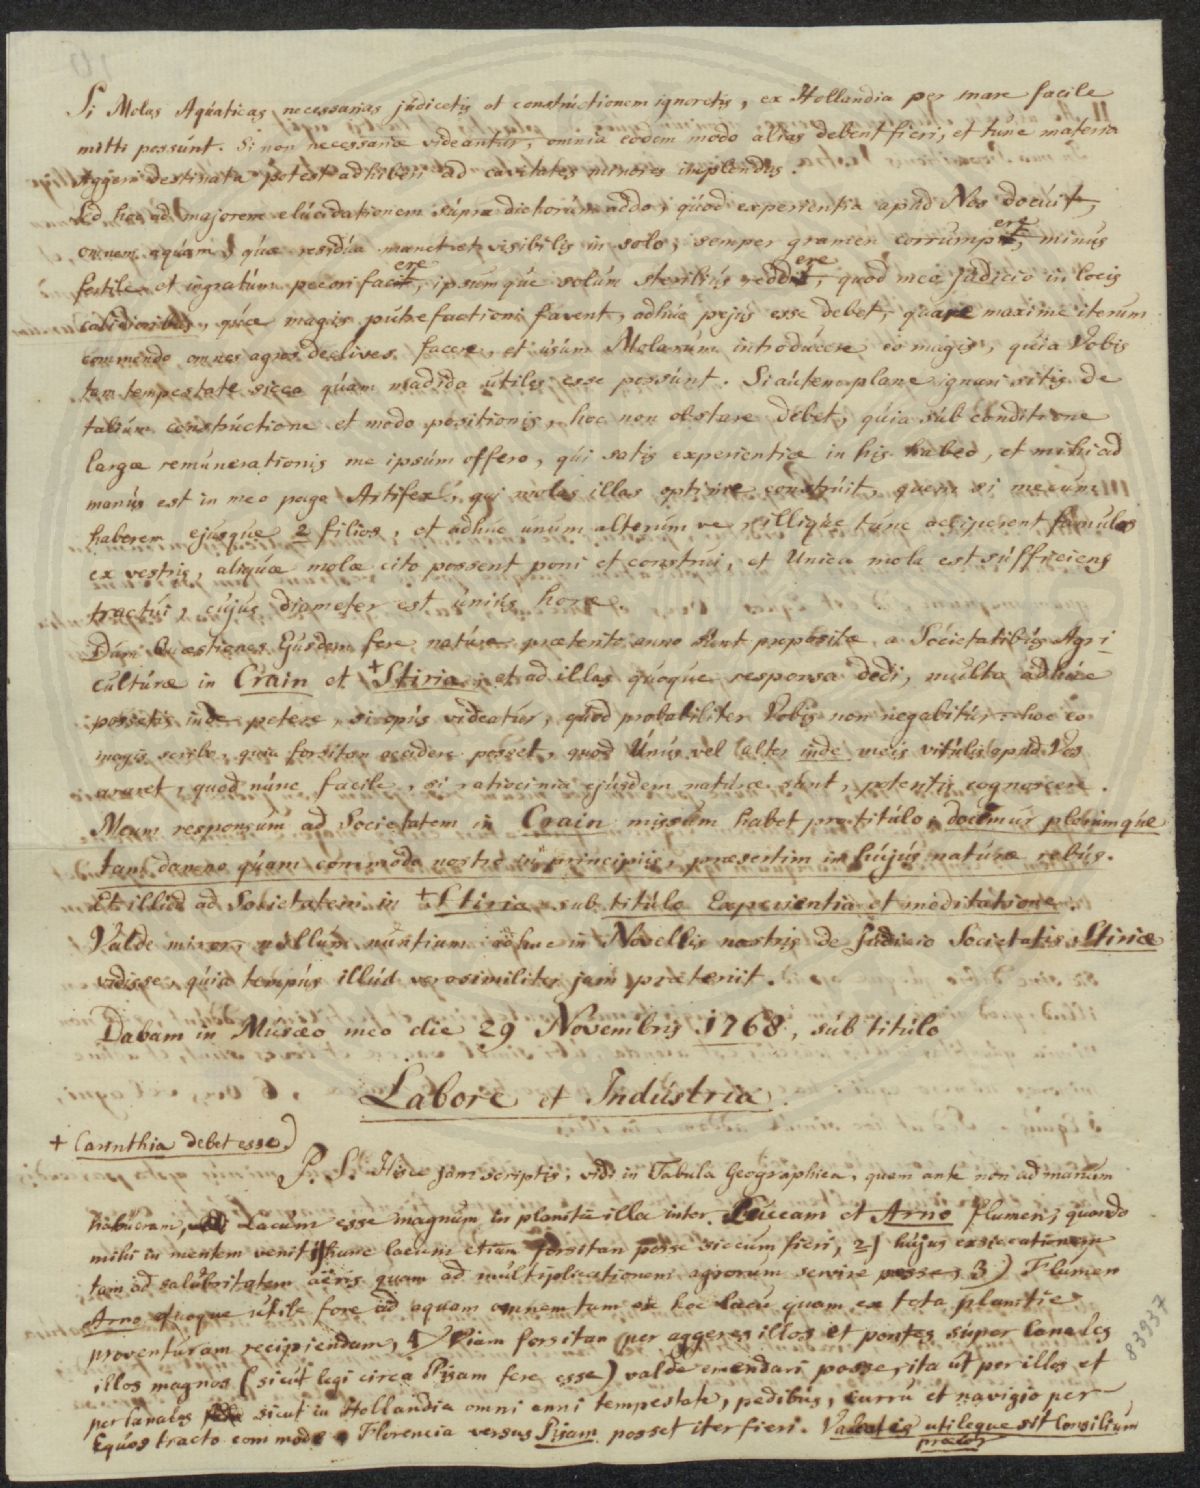 Si Molas Aquaticas necessarias judicetis et constructionem ignoretis, ex Hollandia per mare facile
mitti possunt. Si non necessariæ videantur, omnia eodem modo alias debent fieri, et tunc materia
aggeri destinata potest adhiberi ad cavitates minores implendas.
Ad hæc ad majorem elucidationem supra dictorum addo, quod experientia apud Nos docuit,
omnem aquam, quæ residua manet et visibilis in solo, semper gramen corrumpere, minus
fertile et ingratum pecori facere, ipsumque solum sterilius reddere, quod meo judicio in locis
calidioribus, quæ magis putrefactioni favent, adhuc pejus esse debet, quare maxime iterum
commendo omnes agros declives facere, et usum Molarum introducere eo magis, quia Vobis
tam tempestate sicca quam madida utiles esse possunt. Si autem plane ignari sitis de
talium constructione et modo positionis, hoc non obstare debet, quia sub conditione
largæ remunerationis me ipsum offero, qui satis experientiæ in his habeo, et mihi ad
manus est in meo pago Artifex, qui molas illas optime construit, quem si mecum
haberem ejusque 2 filios, et adhuc unum alterum ve, illique tunc acciperent famulos
ex vestris, aliquæ molæ cito possent poni et construi, et Unica mola est sufficiens
tractui, cujus diameter est unius horæ.
Dum Quæstiones Ejusdem fere naturæ præterito anno sunt propositæ a Societatibus Agri
culturæ in Crain et + Stiria, et ad illas quoque responsa dedi, multa adhuc
possetis inde petere, si opus videatur, quod probabiliter Vobis non negabitur, hoc eo
magis scribo, quia forsitan accidere posset, quod Unus vel alter inde meis vitulis apud Vos
araret, quod nunc facile, si ratiocinia ejusdem naturæ sunt, potestis cognoscere.
Meum responsum ad Societatem in Crain missum habet pro titulo; docemur plerumque
tam damno quam commodo nostro in principiis, præsertim in hujus naturæ rebus.
Et illud ad Societatem in + Stiria sub titulo Experientia et meditatione.
Valde miror, nullum nuntium adhuc in Novellis nostris de Judicio Societatis Stiriæ
vidisse, quia tempus illud verosimiliter jam præteriit.
Dabam in Musæo meo die 29 Novembris 1768, sub titulo
Labore et Industria.
+ Carinthia debet esse)
P. S. Hisce jam scriptis, vidi in Tabula Geographica, quam ante non ad manum
habueram, Lacum esse magnum in planitie illa inter Luccam et Arno flumen, quando
mihi in mentem venit 1) hunc lacum etiam forsitan posse siccum fieri, 2) hujus exsiccationem
tam ad salubritatem aëris quam ad multiplicationem agrorum servire posse, 3) Flumen
Arno quoque utile fore ad aquam omnem tam ex hoc lacu quam ex tota planitie
proventuram recipiendam, 4) Viam forsitan (per aggeres illos et pontes super Canales
illos magnos (sicut legi circa Pisam fere esse) valde emendari posse, ita ut per illos et
per Canales sicut in Hollandia omni anni tempestate, pedibus, curru et navigio per
Equos tracto commode Florencia versus Pisam posset iter fieri. Valeatis utileque sit Consilium
83937